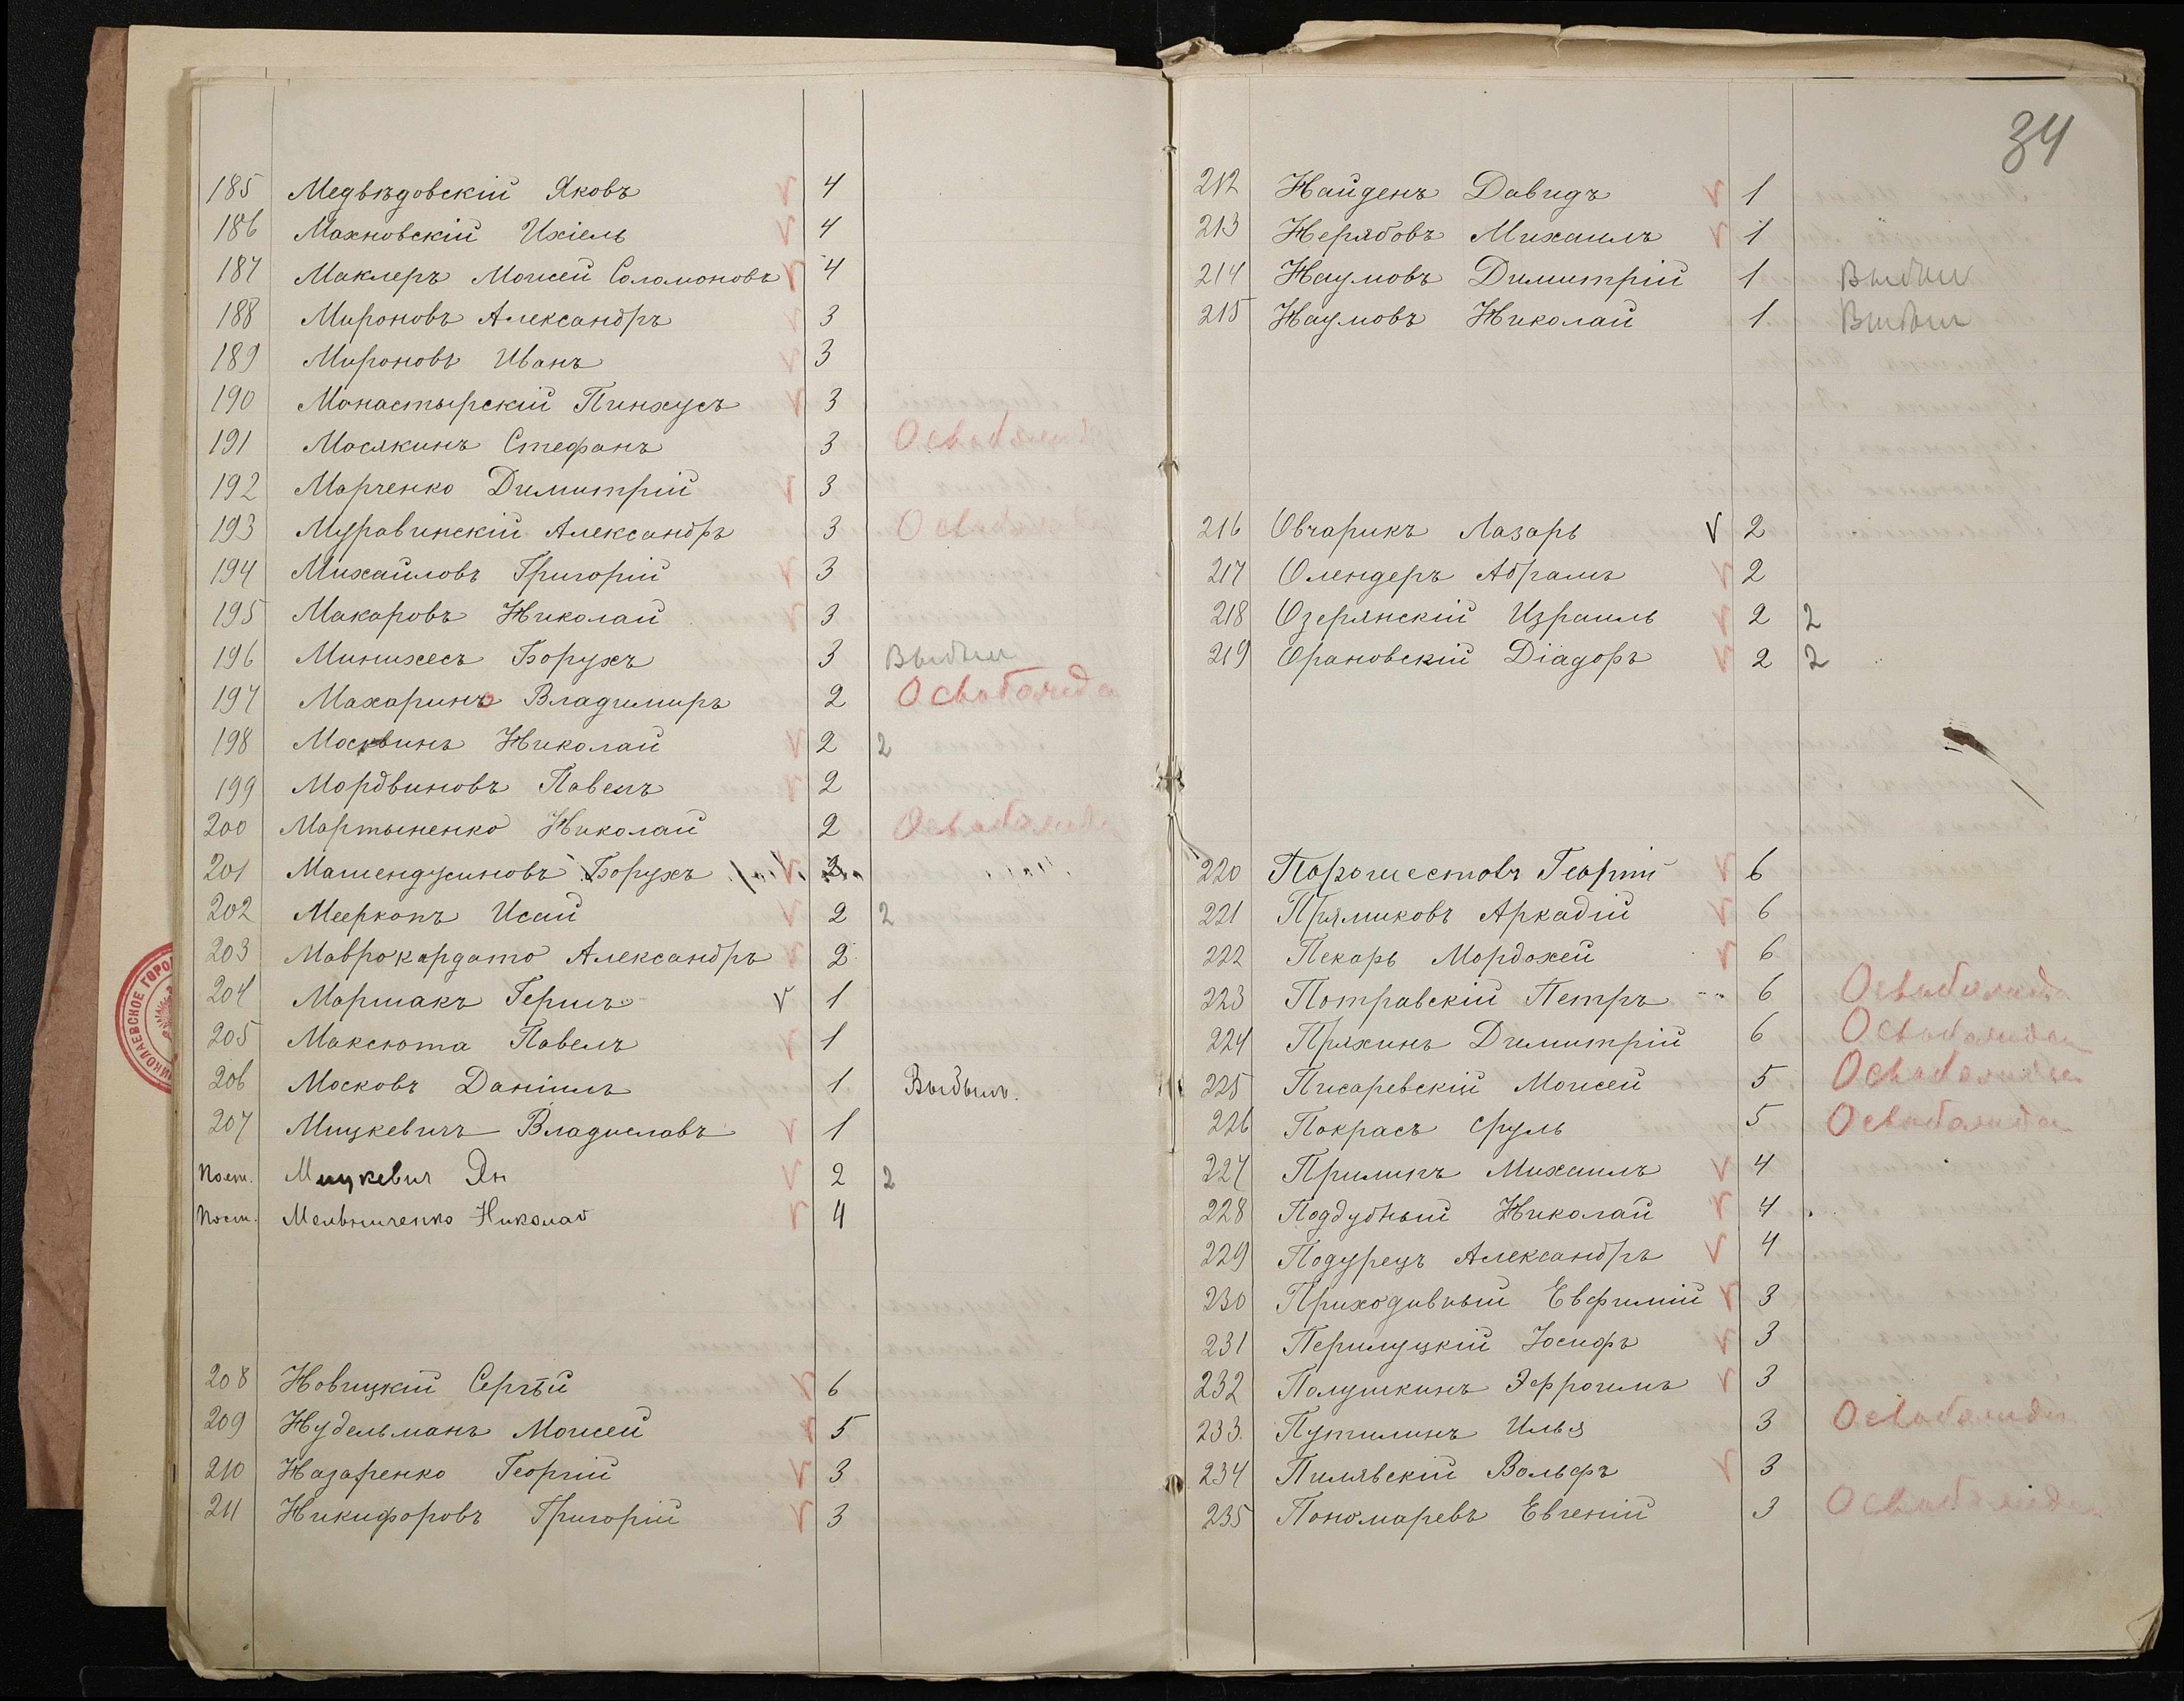 185 Медвѣдовскій Яковъ √ 4
186 Махновскій Ихіель √ 4
187 Маклеръ Моисей Соломоновъ √ 4
188 Мироновъ Александръ √ 3
189 Мироновъ Иванъ √ 3
190 Монастырскій Пинхусъ √ 3
191 Мосякинъ Стефанъ 3
192 Марченко Димитрій √ 3
193 Муравинскій Александръ 3
194 Михайловъ Григорій √ 3
195 Макаровъ Николай √ 3
196 Минихесъ Борухъ 3 Выбыл
197 Махаринъ Владимиръ 2 Освобожда
198 Москвинъ Николай √ 2 2
199 Мордвиновъ Павелъ √ 2
200 Мартыненко Николай 2
201 Борухъ √
202 Мееркопъ Исай √ 2 2
203 Маврокардато Александръ √ 2
204 Маршакъ Гершъ √ 1
205 Максюта Павелъ √ 1
206 Московъ Даніилъ 1 Выбылъ.
207 Мицкевичъ Владиславъ √ 1
Пост. Мицкевич Ян √ 2 2
Пост. Мельниченко Николай √ 4
208 Новицкій Сергѣй √ 6
209 Нудельманъ Моисей √ 5
210 Назаренко Георгій √ 3
211 Никифоровъ Григорій √ 3
НИКОЛАЕВСКОЕ ГОРО
34
212 Найденъ Давидъ √ 1
213 Нерябовъ Михаилъ √ 1
214 Наумовъ Димитрій 1 Выбыл
215 Наумовъ Николай 1 Выбыл
216 Овчарикъ Лазарь √ 2
217 Олендеръ Абрамъ √ 2
218 Озерянскій Израиль √ 2 2
219 Орановскій Діадоръ √ 2 2
220 Георгій √ 6
221 Прямиковъ Аркадій √ 6
222 Пекарь Мордохей √ 6
223 Потравскій Петръ 6 Освобожда
224 Пряхинъ Димитрій 6 Освобожден
225 Писаревскій Моисей 5 Освобожден
226 Покрасъ Сруль 5 Освобожда
227 Прилипъ Михаилъ √ 4
228 Поддубный Николай √ 4
229 Подурецъ Александръ √ 4
230 Приходивный Евфимій √ 3
231 Перилуцкій Іосифъ √ 3
232 Полушкинъ Эфроимъ √ 3
233 Путилинъ Илья 3 Освобожден
234 Пилявскій Вольфъ √ 3
235 Пономаревъ Евгеній 3 Освобожден